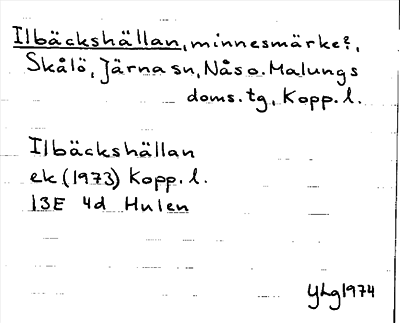 Ilbäckshällan, minnesmärke?,
Skålö, Järna sn, Nås o. Malungs
doms. tg, Kopp. l.
Ilbäckshällan
ek (1973) Kopp. l.
13E 4d Hulen
YLg 1974